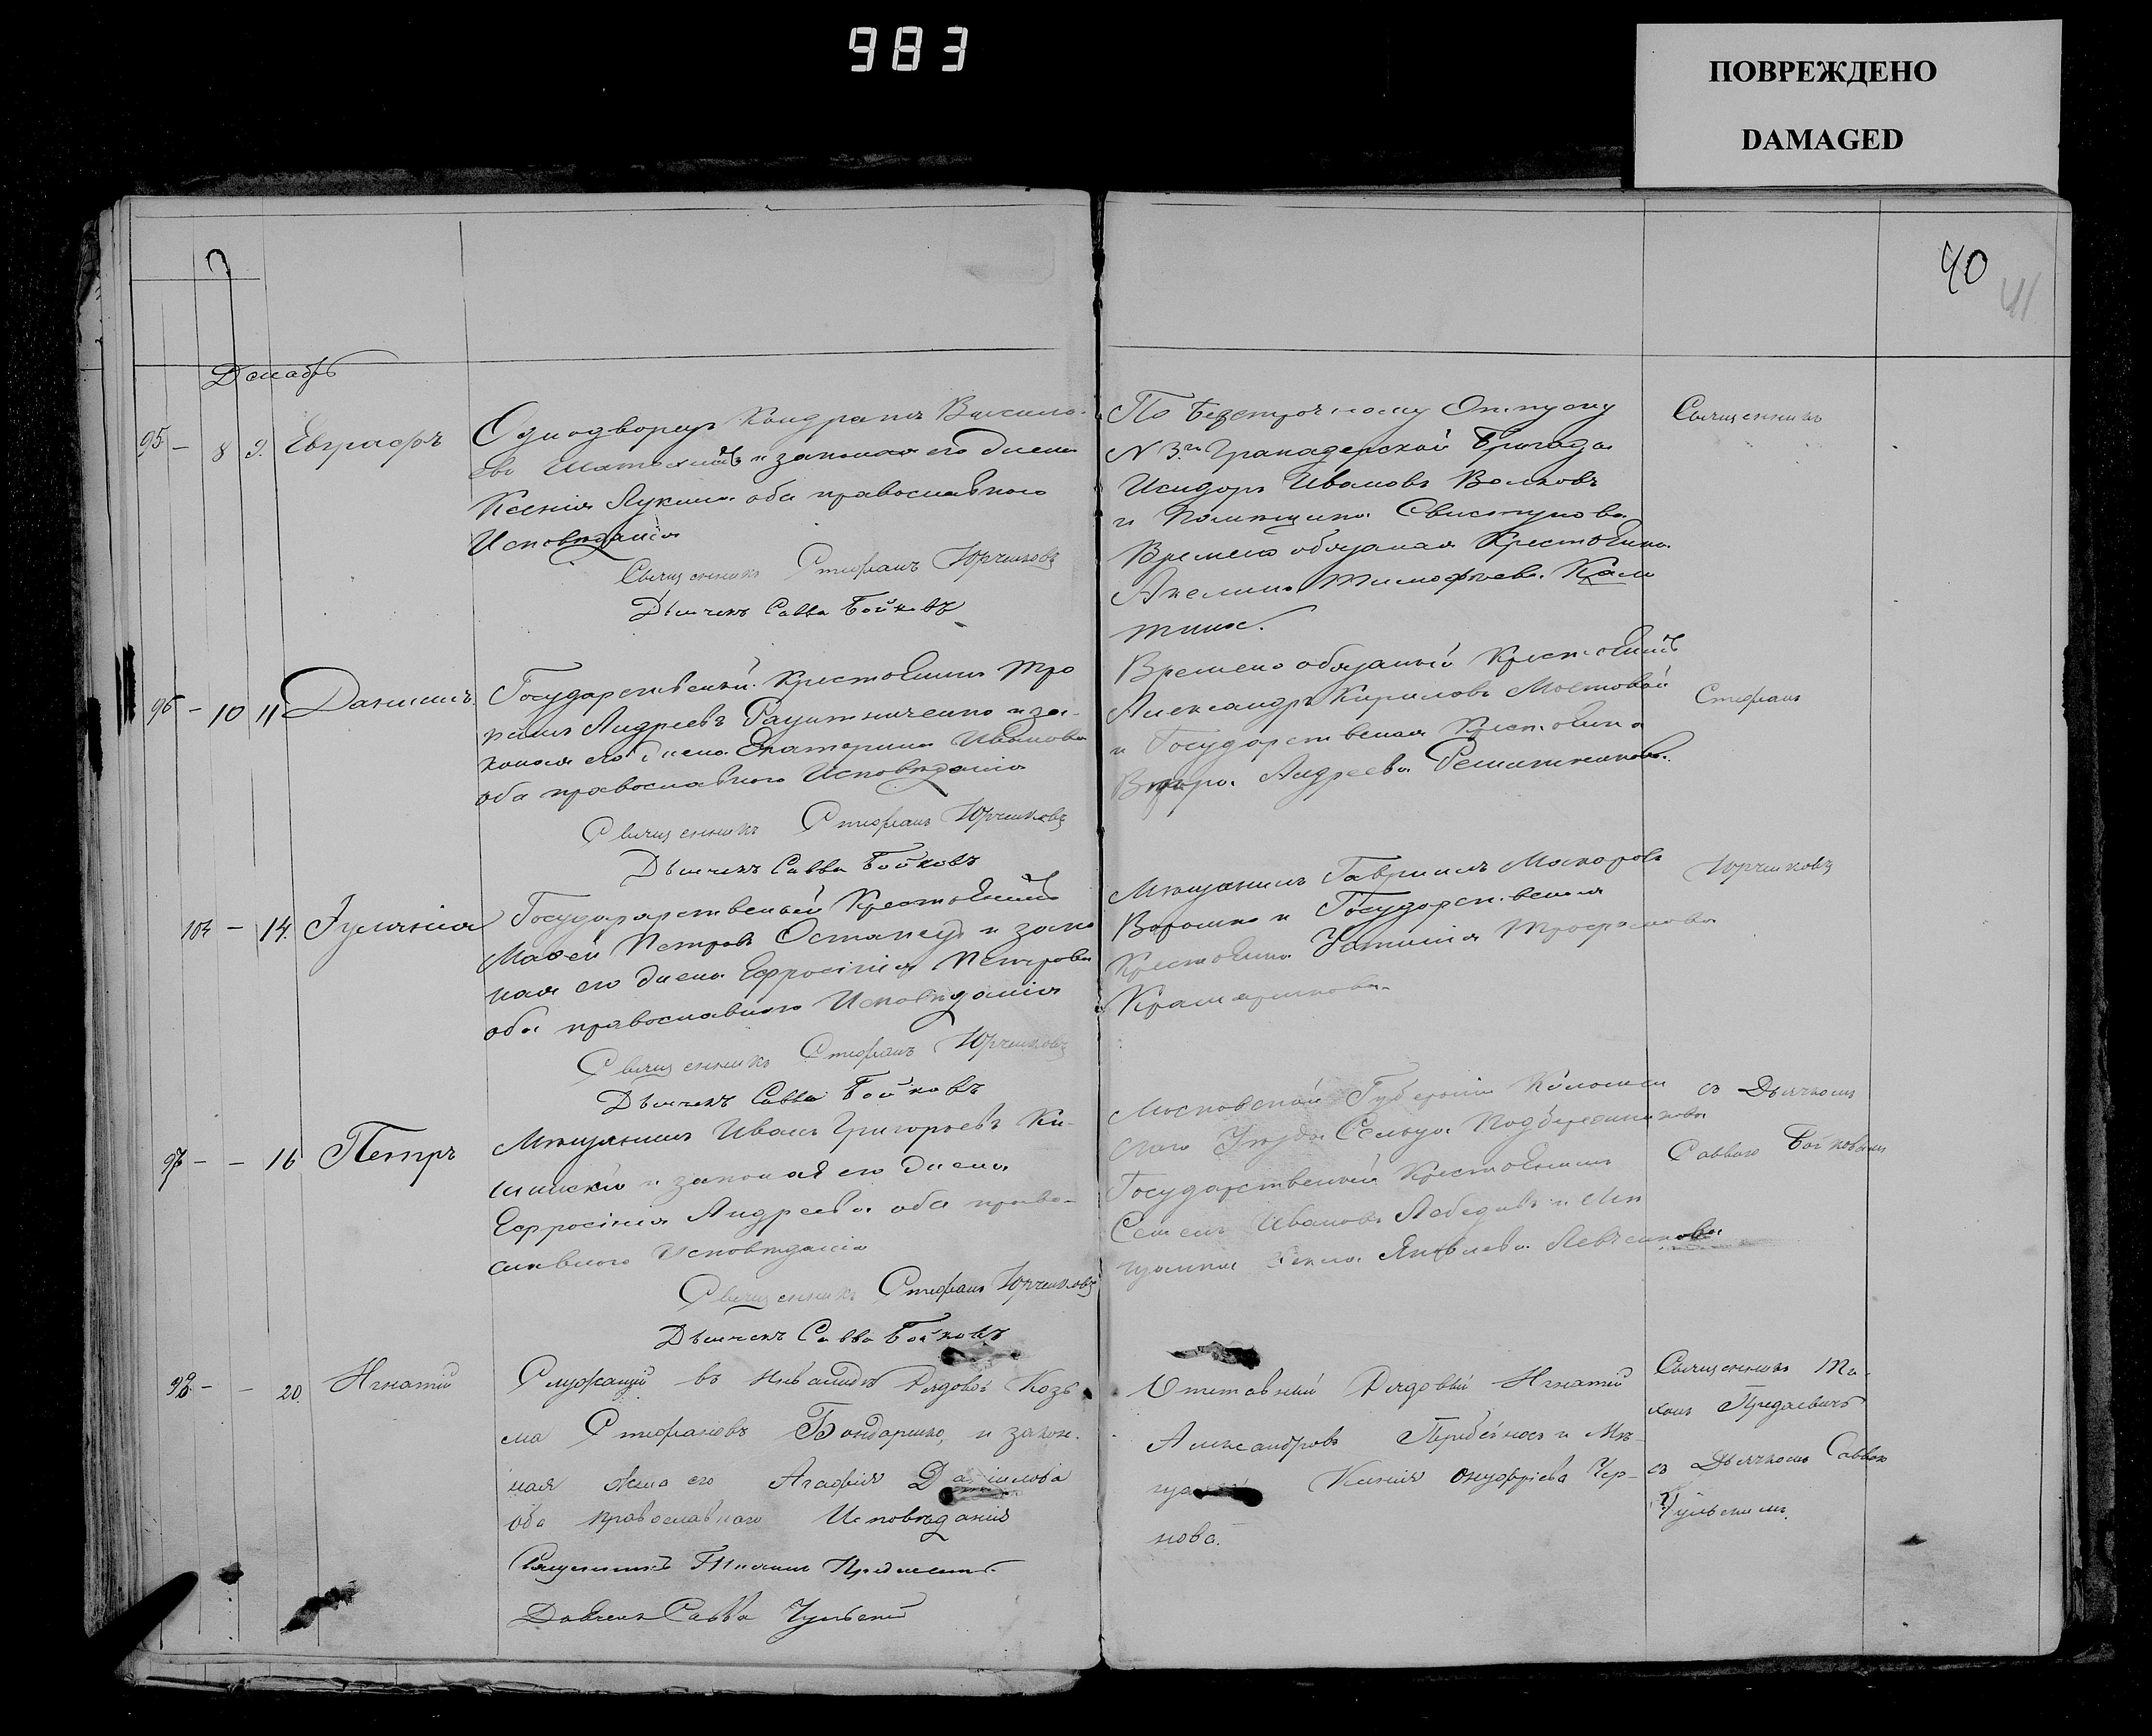 983
ПОВРЕЖДЕНО
DAMAGED
40
41
Декабрь
95 – 8 9. Евграфъ
Однодворец Кондратъ Василь
евъ и законная его жена
Ксенія Лукина оба православного
Исповѣданія
Священникъ Стефанъ Юрченковъ
Дьячекъ Савва Бойковъ
По безсрочному Отпуску
N 3й Гранадерской Бригады
Исидоръ Ивановъ Волковъ
и Помещика Свистунова
Времено обязаная Крестьянка
Акелина Тимофеева Кали
тина.
Священникъ
96 – 10 11 Даніилъ
Государственый Крестьянинъ Тро
Андреевъ и за-
коная его жена Екатерина Иванова
оба православного Исповѣданія
Священникъ Стефанъ Юрченковъ
Дьячекъ Савва Бойковъ
Времено обязаный Крестьянинъ
Александръ Кириловъ Мостовой
и Государственая Крестьянка
Андреева Решитникова.
Стефанъ
104 – 14. Іулянія
Государарственый Крестьянинъ
Матѳей Петровъ Остапецъ и зако
ная его жена Ефросінія Петрова
оба православного Исповѣданія
Священникъ Стефанъ Юрченковъ
Дьячекъ Савва Бойковъ
Мѣщанинъ Гавриилъ Макаровъ
и Государственая
Крестьянка Устинія Трофимова
Юрченковъ
97 – – 16 Петръ
Мѣщанинъ Иванъ Григорьевъ Ки-
и законая его жена
Ефросінія Андреева оба право-
славного Исповѣданія
Священникъ Стефанъ Юрченковъ
Дьячекъ Савва Бойковъ
Московской Губерніи Коломен
скаго Уѣзда Сельца
Государственый Крестьянинъ
Семенъ Ивановъ Лебедевъ и Мѣ
щанка Яковлева Левченкова
съ Дьячкомъ
Саввою Бойковымъ
98 – – 20. Игнатій
Служащій въ Инвалидѣ Рядовой Козь
ма Стефановъ Бондаренко, и закон.
ная жена его Агафія Даніилова
оба православнаго Исповѣданія
Священникъ
Дьячекъ Савва Чульскій
Отставный Рядовый Игнатій
Александровъ Перебейносъ и Мѣ-
Ксенія Онуфріева Чер-
нова.
Священникъ Ти-
съ Дьячкомъ Саввою
Чульскимъ.